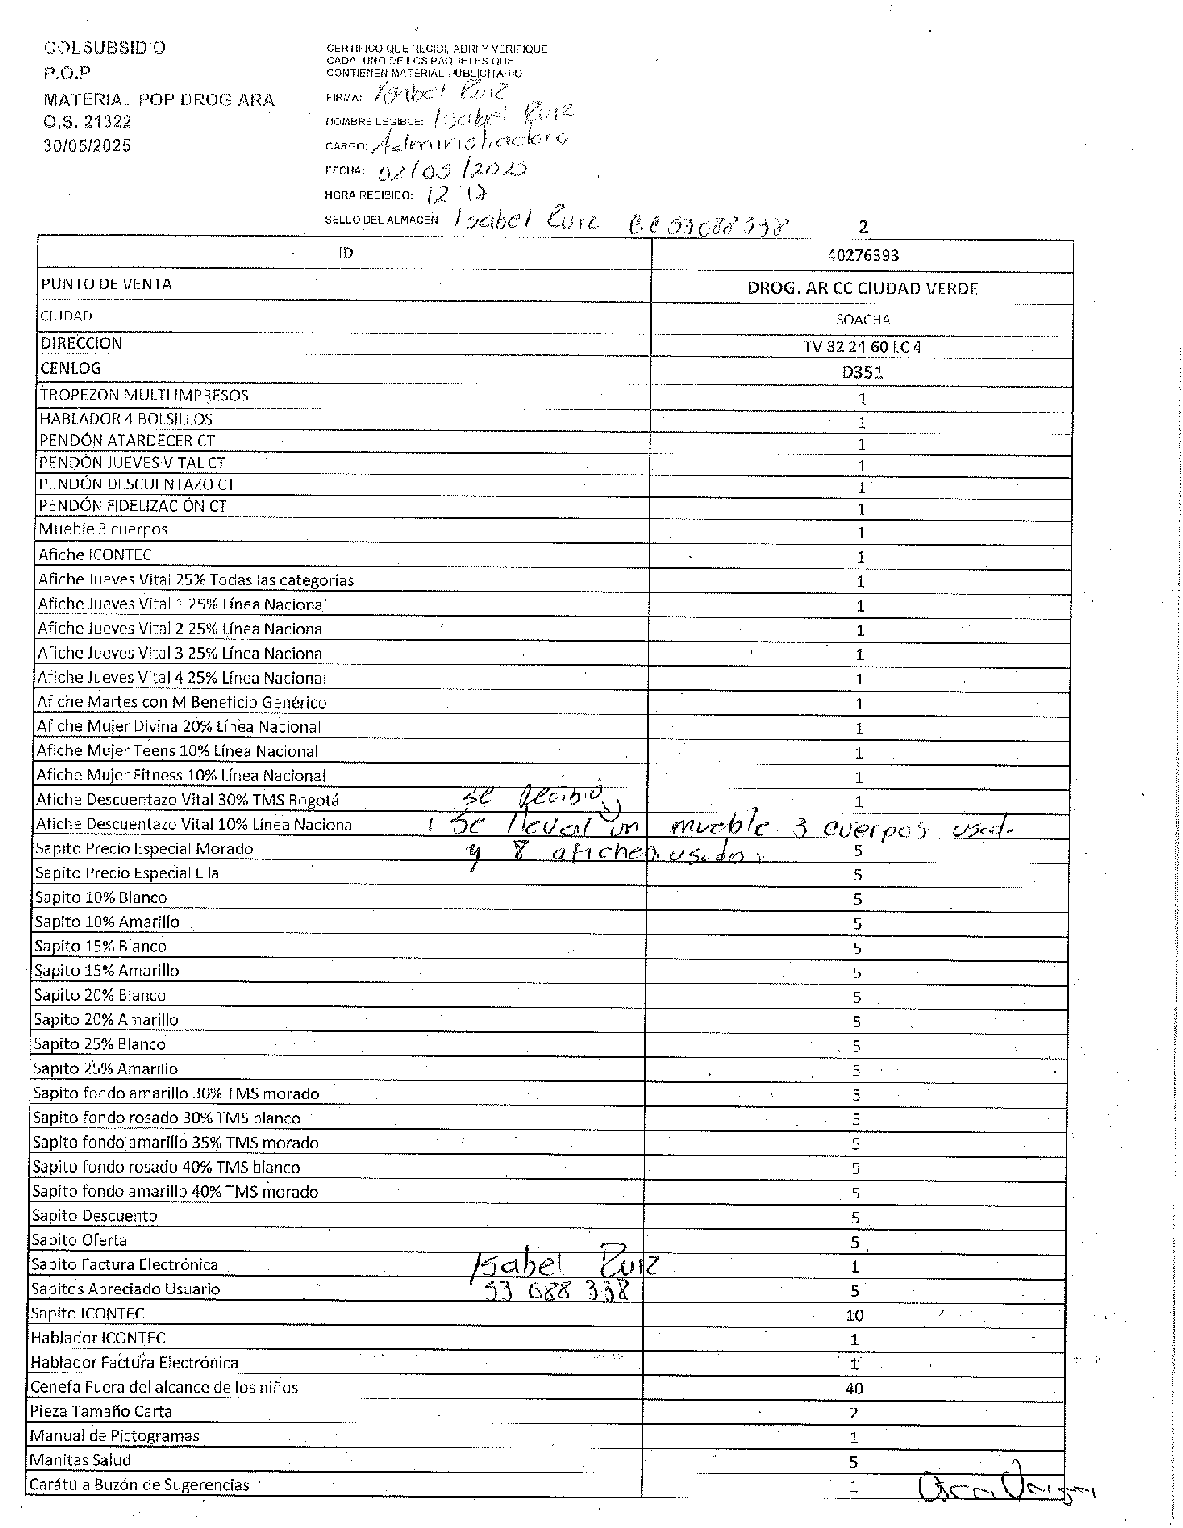 COLSUBSIDIO
P.O.P
MATERIAL POP DROG ARA
O.S. 21322
30/05/2025
CERTIFICO QUE RECIBI, ABRI Y VERIFIQUE
CADA UNO DE LOS PAQUETES QUE
CONTIENEN MATERIAL PUBLICITARIO
FIRMA: Isabel Ruiz
NOMBRE LEGIBLE: Isabel Ruiz
CARGO: Administradora
FECHA: 02/05/2025
HORA RECIBIDO: 12 12
SELLO DEL ALMACEN Isabel Ruiz
2
ID 40276393
PUNTO DE VENTA DROG. AR CC CIUDAD VERDE
CIUDAD SOACHA
DIRECCION TV 32 21 60 LC 4
CENLOG D351
TROPEZON MULTI IMPRESOS 1
HABLADOR 4 BOLSILLOS 1
PENDÓN ATARDECER CT 1
PENDÓN JUEVES VITAL CT 1
PENDÓN DESCUENTAZO CT 1
PENDÓN FIDELIZACIÓN CT 1
Mueble 3 cuerpos 1
Afiche ICONTEC 1
Afiche Jueves Vital 25% Todas las categorias 1
Afiche Jueves Vital 1 25% Línea Nacional 1
Afiche Jueves Vital 2 25% Línea Naciona 1
Afiche Jueves Vital 3 25% Línea Naciona 1
Afiche Jueves Vital 4 25% Línea Nacional 1
Afiche Martes con M Beneficio Genérico 1
Afiche Mujer Divina 20% Línea Nacional 1
Afiche Mujer Teens 10% Línea Nacional 1
Afiche Mujer Fitness 10% Línea Nacional 1
Afiche Descuentazo Vital 30% TMS Bogotá se recibio 1
Afiche Descuentazo Vital 10% Línea Naciona 1 se lleval un mueble 3 cuerpos usado
Sapito Precio Especial Morado y 8 afiches usados 5
Sapito Precio Especial Lila 5
Sapito 10% Blanco 5
Sapito 10% Amarillo 5
Sapito 15% Blanco 5
Sapito 15% Amarillo 5
Sapito 20% Blanco 5
Sapito 20% Amarillo 5
Sapito 25% Blanco 5
Sapito 25% Amarillo 5
Sapito fondo amarillo 30% TMS morado 5
Sapito fondo rosado 30% TMS blanco 5
Sapito fondo amarillo 35% TMS morado 5
Sapito fondo rosado 40% TMS blanco 5
Sapito fondo amarillo 40% TMS morado 5
Sapito Descuento 5
Sapito Oferta 5
Sapito Factura Electrónica Isabel Ruiz 1
Sapitos Apreciado Usuario 53 088 338 5
Sapito ICONTEC 10
Hablador ICONTEC 1
Hablador Factura Electrónica 1
Cenefa Fuera del alcance de los niños 40
Pieza Tamaño Carta 2
Manual de Pictogramas 1
Manitas Salud 5
Carátula Buzón de Sugerencias 1